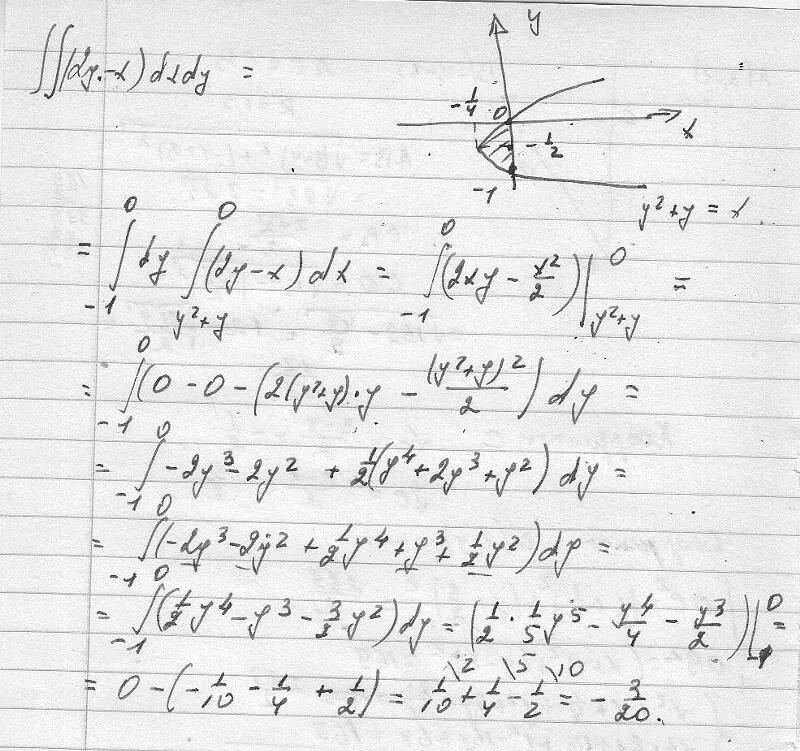 ∫∫(2y-x)dxdy =
y
-1/4 0 x
-1/2
-1
y²+y = x.
= ∫_{-1}^{0} dy ∫_{y²+y}^{0} (2y-x)dx = ∫_{-1}^{0} (2xy - x²/2)|_{y²+y}^{0} =
= ∫_{-1}^{0} (0 - 0 - (2(y²+y)·y - (y²+y)²/2) dy =
= ∫_{-1}^{0} -2y³-2y² + 1/2(y⁴+2y³+y²) dy =
= ∫_{-1}^{0} (-2y³-2y² + 1/2y⁴+y³+1/2y²)dy =
= ∫_{-1}^{0} (1/2y⁴-y³-3/2y²)dy = (1/2·1/5y⁵ - y⁴/4 - y³/2)|_{-1}^{0} =
= 0 - (-1/10 - 1/4 + 1/2) = 1/10\2 + 1/4\5 - 1/2\10 = - 3/20.